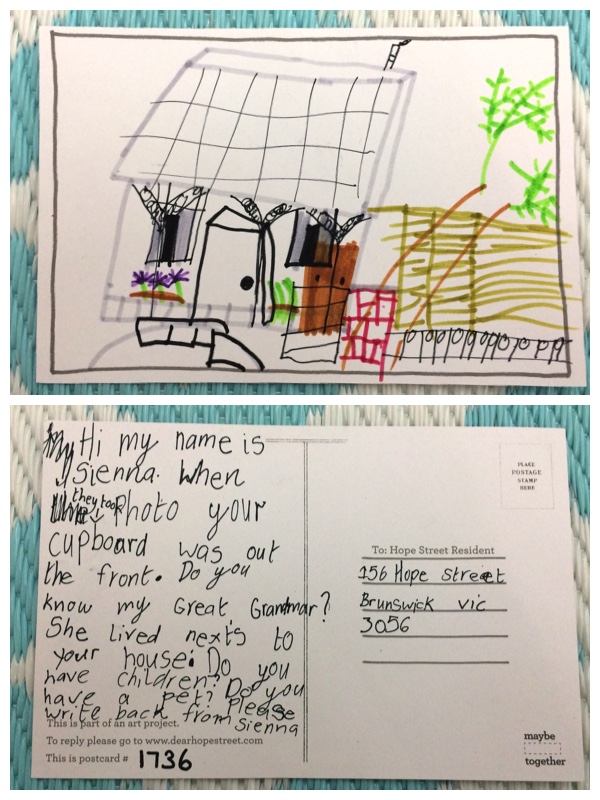 Hi my name is
Sienna. When
they took
Photo your
cupboard was out
the front. Do you
know my Great Grandmar?
She lived nexts to
your house. Do you
have children? Do you
have a pet? Please
write back from Sienna
This is part of an art project.
To reply please go to www.dearhopestreet.com
This is postcard # 1736
PLACE
POSTAGE
STAMP
HERE
To: Hope Street Resident
156 Hope street
Brunswick vic
3056
maybe
together